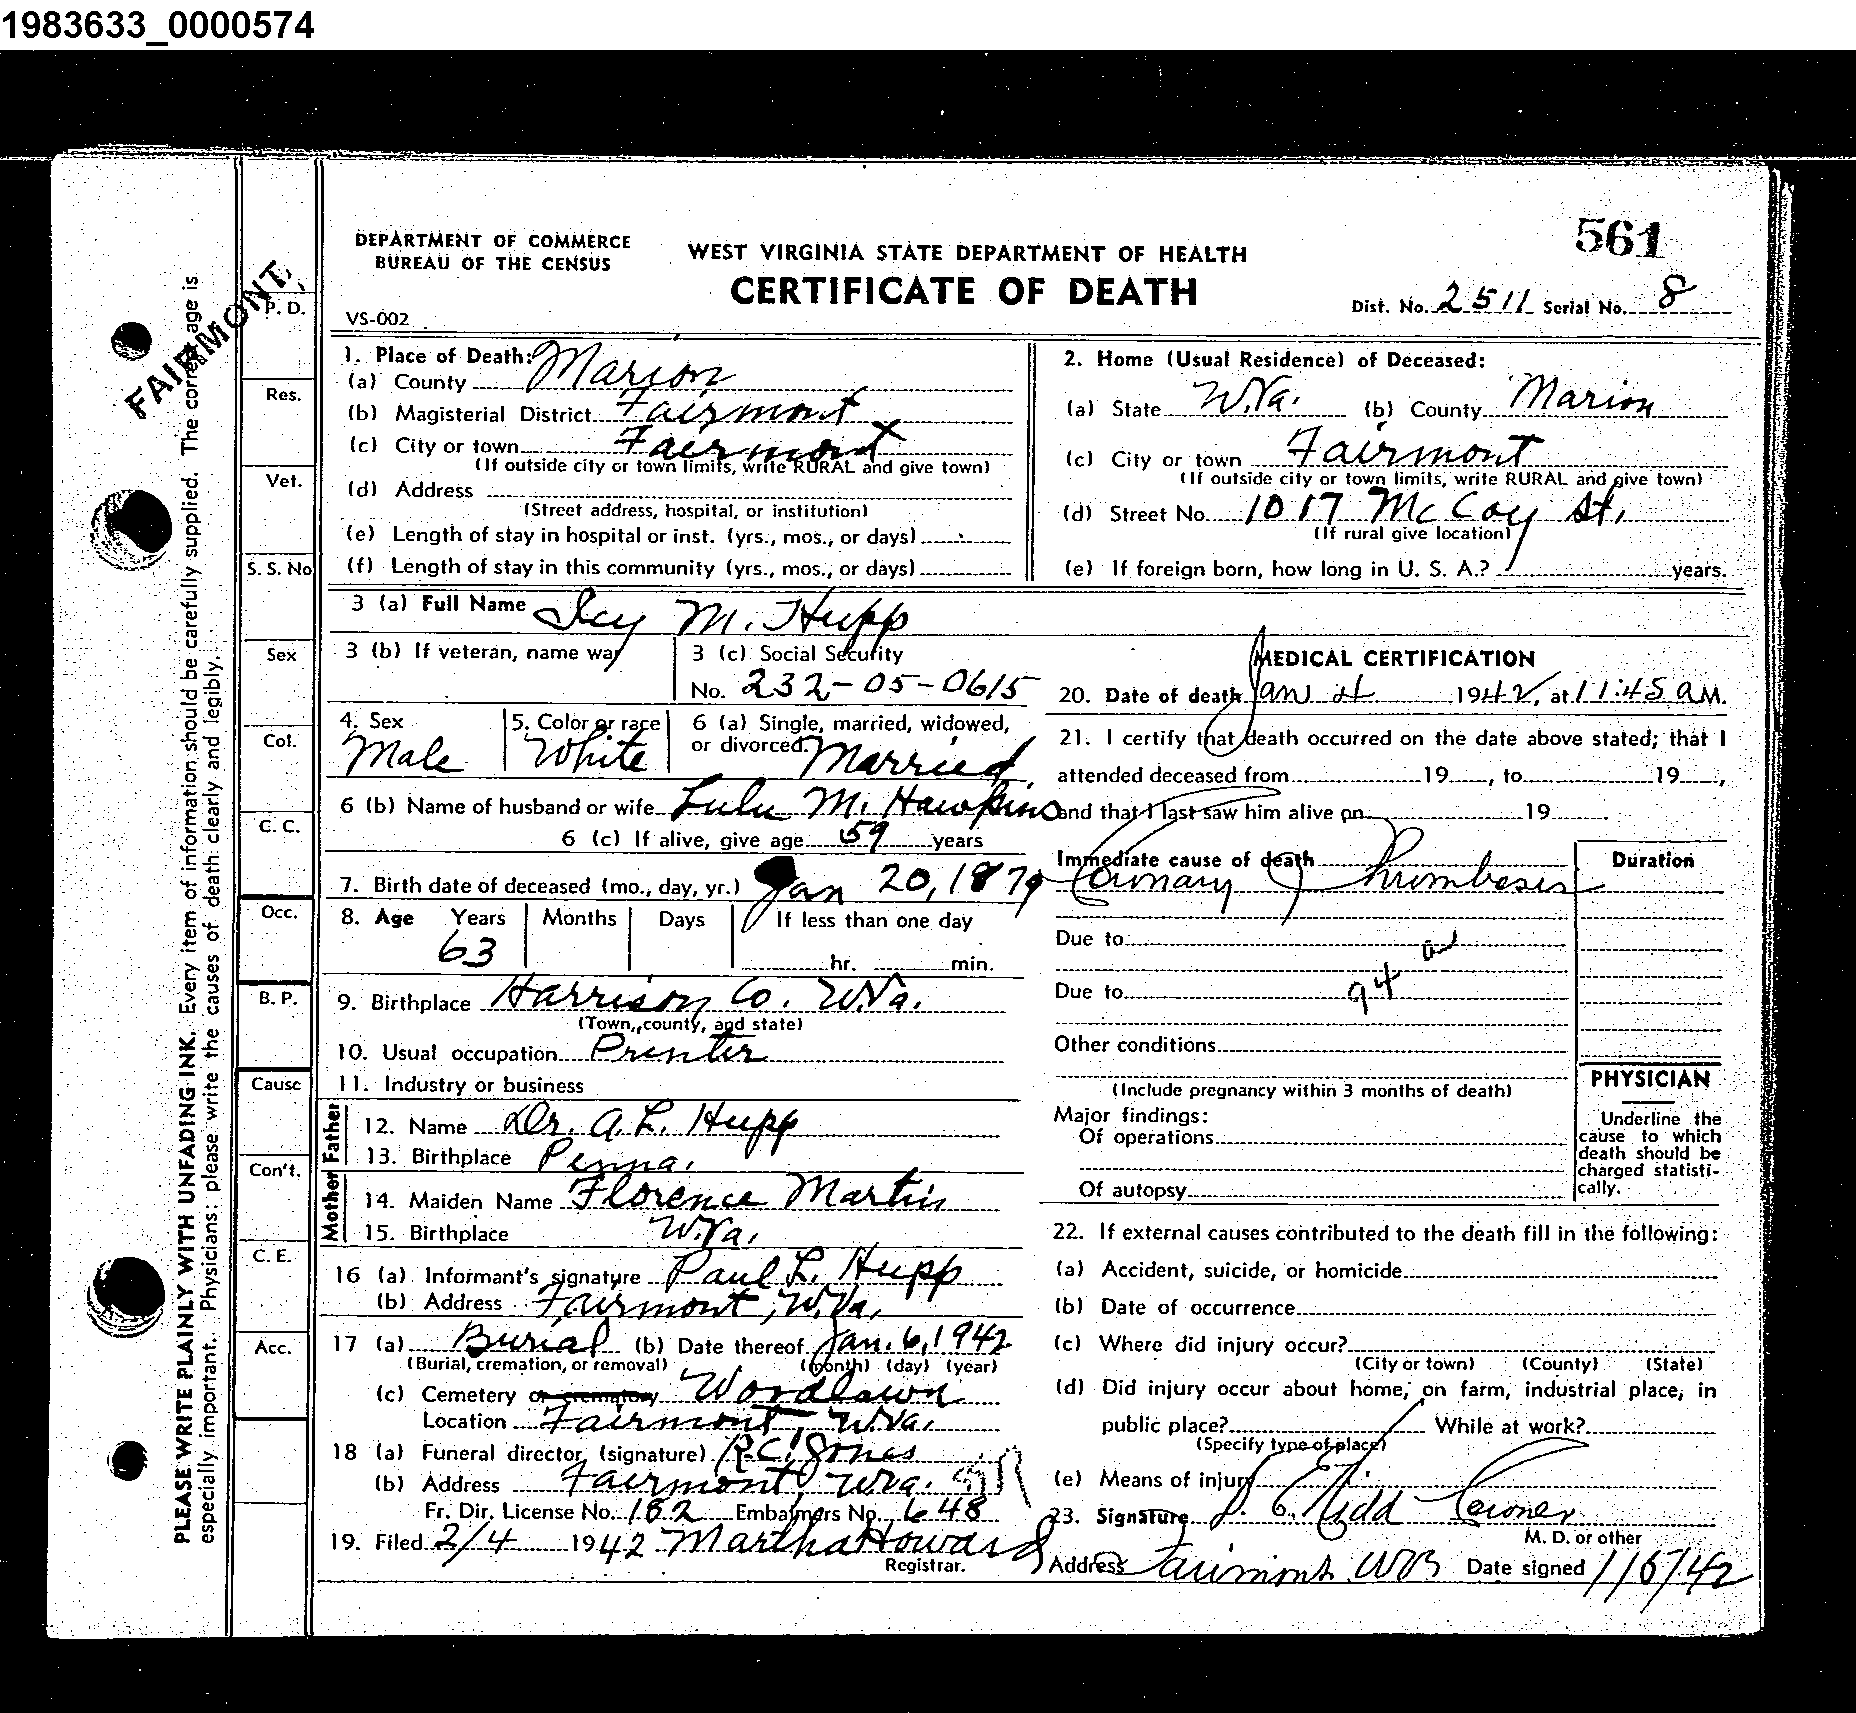 1983633_0000574
561
DEPARTMENT OF COMMERCE
BUREAU OF THE CENSUS
WEST VIRGINIA STATE DEPARTMENT OF HEALTH
CERTIFICATE OF DEATH
VS-002
Dist. No. 2511 Serial No. 8
FAIRMONT,
PLEASE WRITE PLAINLY WITH UNFADING INK. Every item of information should be carefully supplied. The correct age is
especially important. Physicians: please write the causes of death clearly and legibly.
P. D.
Res.
Vet.
S. S. No
Sex
Col.
C. C.
Occ.
B. P.
Cause
Con't.
C. E.
Acc.
1. Place of Death:
(a) County Marion
(b) Magisterial District Fairmont
(c) City or town Fairmont
(If outside city or town limits, write RURAL and give town)
(d) Address
(Street address, hospital, or institution)
(e) Length of stay in hospital or inst. (yrs., mos., or days)
(f) Length of stay in this community (yrs., mos., or days)
2. Home (Usual Residence) of Deceased:
(a) State W.Va. (b) County Marion
(c) City or town Fairmont
(If outside city or town limits, write RURAL and give town)
(d) Street No. 1017 McCoy St.
(If rural give location)
(e) If foreign born, how long in U. S. A.? years.
3 (a) Full Name M. Hupp
3 (b) If veteran, name war
3 (c) Social Security
No. 232-05-0615
4. Sex
Male
5. Color or race
White
6 (a) Single, married, widowed,
or divorced. Married
6 (b) Name of husband or wife Lulu M. Hawkins
6 (c) If alive, give age 59 years
7. Birth date of deceased (mo., day, yr.) Jan 20, 1879
8. Age Years Months Days If less than one day
63
hr. min.
9. Birthplace Harrison Co. W.Va.
(Town, county, and state)
10. Usual occupation Printer
11. Industry or business
Father
12. Name Dr. A. L. Hupp
13. Birthplace Penna.
Mother
14. Maiden Name Florence Martin
15. Birthplace W.Va.
16 (a) Informant's signature Paul L. Hupp
(b) Address Fairmont, W.Va.
17 (a) Burial (b) Date thereof Jan. 6, 1942
(Burial, cremation, or removal) (month) (day) (year)
(c) Cemetery or crematory Woodlawn
Location Fairmont, W.Va.
18 (a) Funeral director (signature) R.C. Jones
(b) Address Fairmont, W.Va.
Fr. Dir. License No. 182 Embalmers No. 648
19. Filed 2/4 1942 Martha Howard
Registrar.
MEDICAL CERTIFICATION
20. Date of death Jan 4 1942, at 11:45 a M.
21. I certify that death occurred on the date above stated; that I
attended deceased from 19 , to 19 ,
and that I last saw him alive on 19
Immediate cause of death Duration
Coronary Thrombosis
Due to
Due to 94 a
Other conditions
(Include pregnancy within 3 months of death)
Major findings:
Of operations
Of autopsy
PHYSICIAN
Underline the
cause to which
death should be
charged statisti-
cally.
22. If external causes contributed to the death fill in the following:
(a) Accident, suicide, or homicide
(b) Date of occurrence
(c) Where did injury occur?
(City or town) (County) (State)
(d) Did injury occur about home, on farm, industrial place, in
public place? While at work?
(Specify type of place)
(e) Means of injury
23. Signature Kidd Coroner
M. D. or other
Address Fairmont WVa Date signed 1/6/42